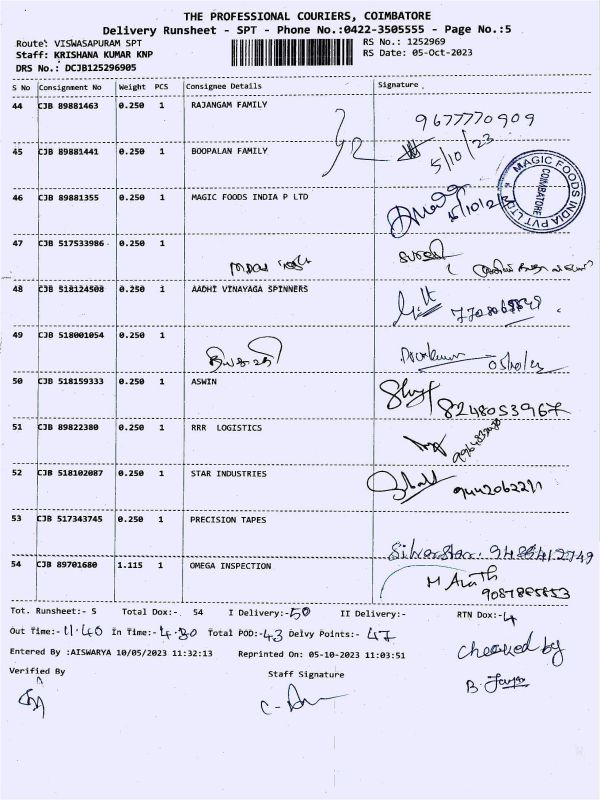 THE PROFESSIONAL COURIERS, COIMBATORE
Delivery Runsheet - SPT - Phone No.:0422-3505555 - Page No.:5
Route: VISWASAPURAM SPT RS No.: 1252969
Staff: KRISHANA KUMAR KNP RS Date: 05-Oct-2023
DRS No.: DCJB125296905
S No Consignment No Weight PCS Consignee Details Signature
44 CJB 89881463 0.250 1 RAJANGAM FAMILY 9677770909
45 CJB 89881441 0.250 1 BOOPALAN FAMILY 5/10/23
46 CJB 89881355 0.250 1 MAGIC FOODS INDIA P LTD
MAGIC FOODS INDIA PVT LTD COIMBATORE
47 CJB 517533986 0.250 1
48 CJB 518124508 0.250 1 AADHI VINAYAGA SPINNERS
49 CJB 518001054 0.250 1
50 CJB 518159333 0.250 1 ASWIN 8248053967
51 CJB 89822380 0.250 1 RRR LOGISTICS
52 CJB 518102087 0.250 1 STAR INDUSTRIES
53 CJB 517343745 0.250 1 PRECISION TAPES
54 CJB 89701680 1.115 1 OMEGA INSPECTION
Tot. Runsheet:- 5 Total Dox:- 54 I Delivery:-50 II Delivery:- RTN Dox:-4
Out Time:-11.40 In Time:-4.30 Total POD:-43 Delvy Points:- 47
Entered By :AISWARYA 10/05/2023 11:32:13 Reprinted On: 05-10-2023 11:03:51
Checked by
Verified By Staff Signature